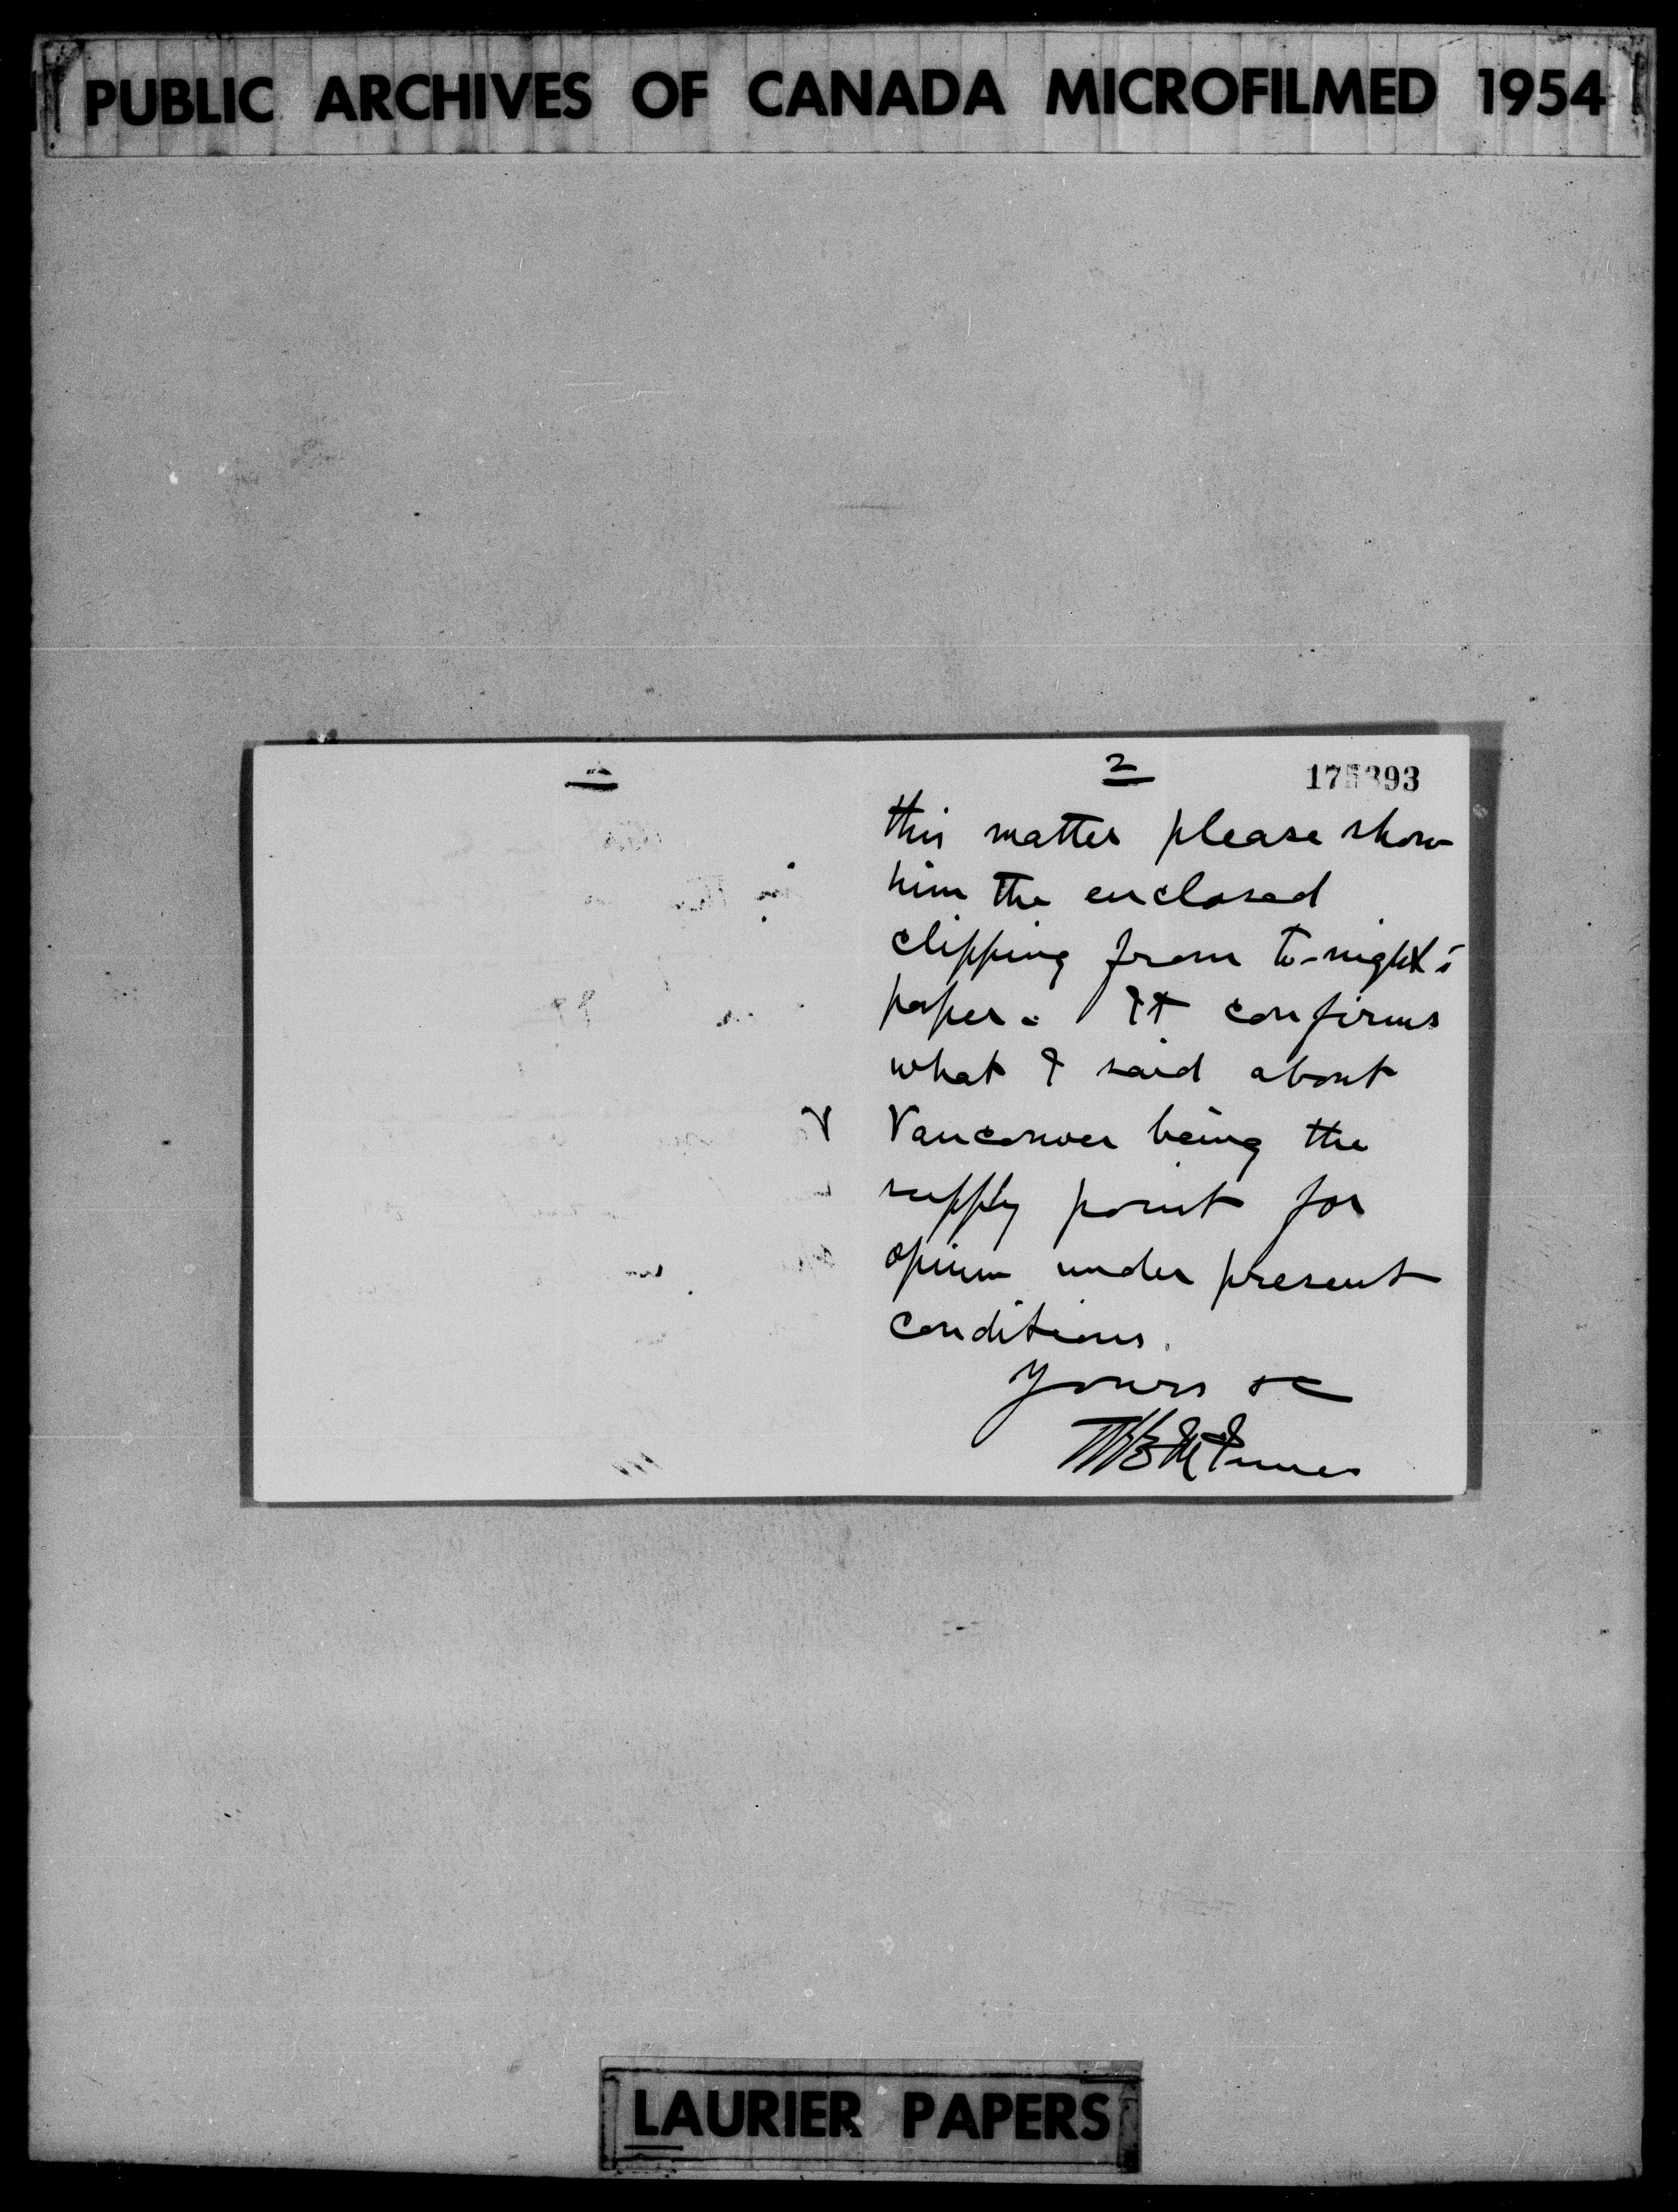 PUBLIC ARCHIVES OF CANADA MICROFILMED 1954
2
this matter please show
him the enclosed
clipping from to-night's
paper. It confirms
what I said about
Vancouver being the
supply point for
opium under present
conditions.
Yours &c
McInnes
LAURIER PAPERS